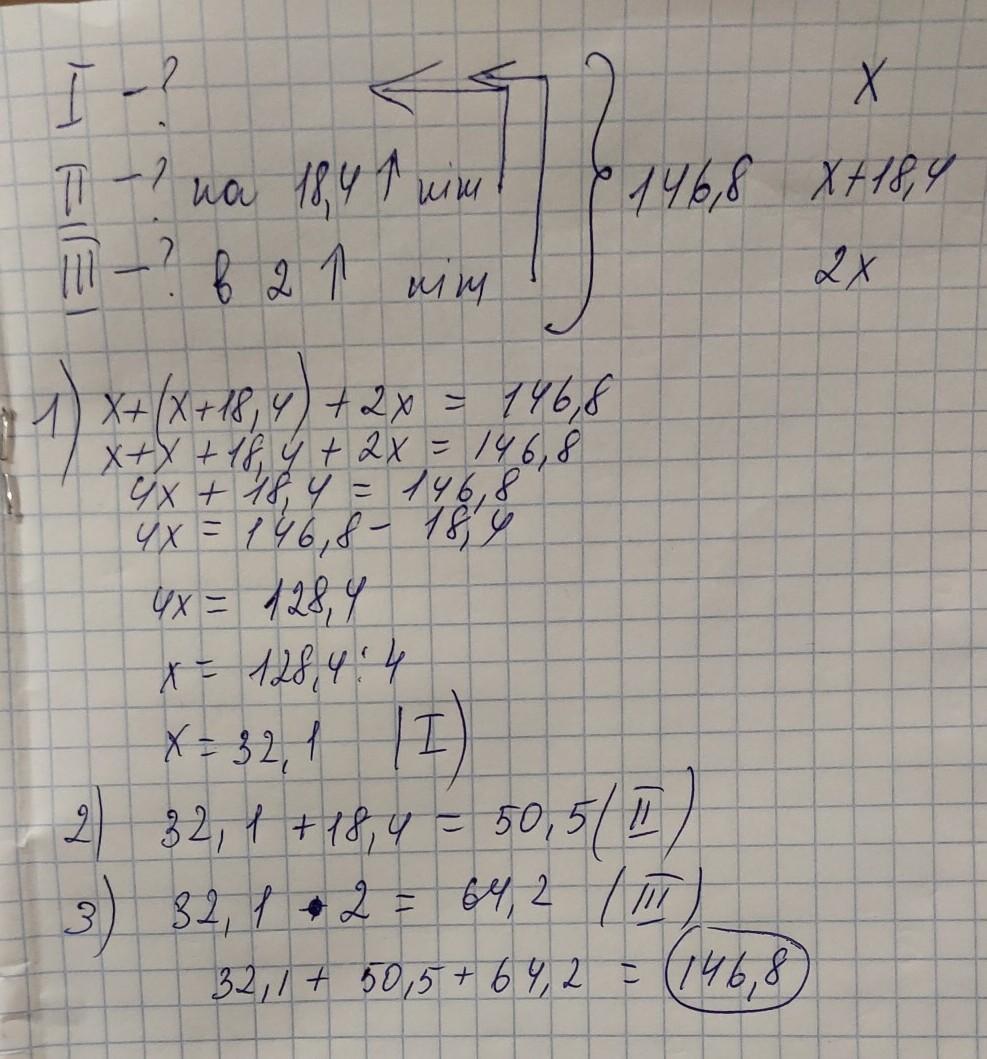 I – ? X
II – ? на 18,4 ↑ ніж 146,8 x+18,4
III – ? в 2 ↑ ніж 2x
1) x+(x+18,4) + 2x = 146,8
x+x+18,4 + 2x = 146,8
4x + 18,4 = 146,8
4x = 146,8 – 18,4
4x = 128,4
x = 128,4 : 4
x = 32,1 (I)
2) 32,1 + 18,4 = 50,5 (II)
3) 32,1 • 2 = 64,2 (III)
32,1 + 50,5 + 64,2 = 146,8